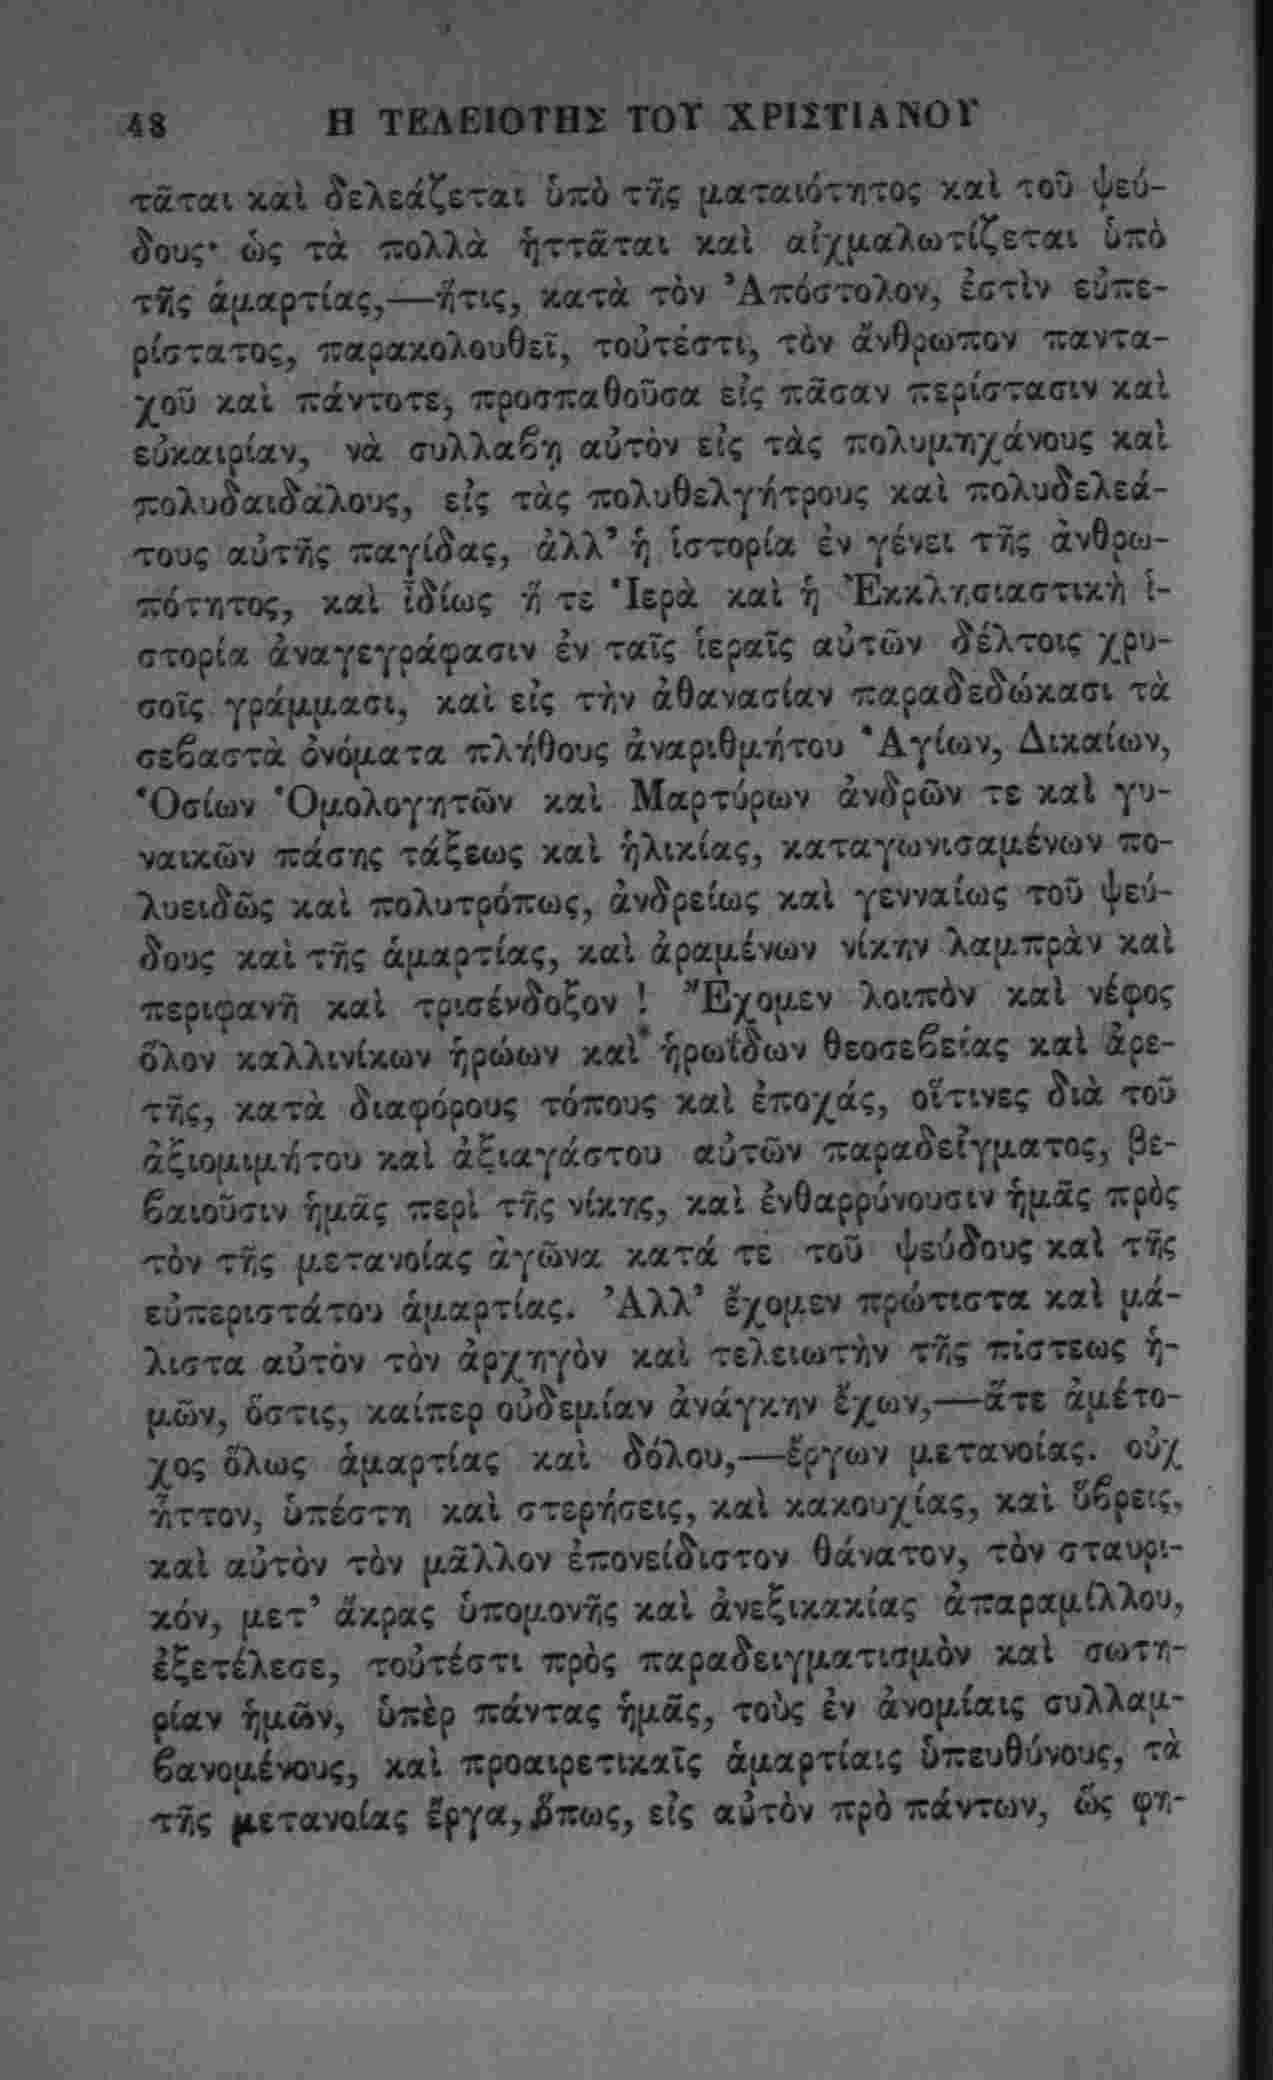 48 Η ΤΕΛΕΙΟΤΗΣ ΤΟΥ ΧΡΙΣΤΙΑΝΟΥ
τᾶται καὶ δελεάζεται ὑπὸ τῆς ματαιότητος καὶ τοῦ ψεύ-
δους· ὡς τὰ πολλὰ ἡττᾶται καὶ αἰχμαλωτίζεται ὑπὸ
τῆς ἁμαρτίας,—ἥτις, κατὰ τὸν Ἀπόστολον, ἐστὶν εὐπε-
ρίστατος, παρακολουθεῖ, τοὐτέστι, τὸν ἄνθρωπον παντα-
χοῦ καὶ πάντοτε, προσπαθοῦσα εἰς πᾶσαν περίστασιν καὶ
εὐκαιρίαν, νὰ συλλαβῃ αὐτὸν εἰς τὰς πολυμηχάνους καὶ
πολυδαιδάλους, εἰς τὰς πολυθελγήτρους καὶ πολυδελεά-
τους αὐτῆς παγίδας, ἀλλ’ ἡ ἱστορία ἐν γένει τῆς ἀνθρω-
πότητος, καὶ ἰδίως ἥ τε Ἱερὰ καὶ ἡ Ἐκκλησιαστικὴ ἱ-
στορία ἀναγεγράφασιν ἐν ταῖς ἱεραῖς αὐτῶν δέλτοις χρυ-
σοῖς γράμμασι, καὶ εἰς τὴν ἀθανασίαν παραδεδώκασι τὰ
σεβαστὰ ὀνόματα πλήθους ἀναριθμήτου Ἁγίων, Δικαίων,
Ὁσίων Ὁμολογητῶν καὶ Μαρτύρων ἀνδρῶν τε καὶ γυ-
ναικῶν πάσης τάξεως καὶ ἡλικίας, καταγωνισαμένων πο-
λυειδῶς καὶ πολυτρόπως, ἀνδρείως καὶ γενναίως τοῦ ψεύ-
δους καὶ τῆς ἁμαρτίας, καὶ ἀραμένων νίκην λαμπρὰν καὶ
περιφανῆ καὶ τρισένδοξον ! Ἔχομεν λοιπὸν καὶ νέφος
ὅλον καλλινίκων ἡρώων καὶ ἡρωΐδων θεοσεβείας καὶ ἀρε-
τῆς, κατὰ διαφόρους τόπους καὶ ἐποχάς, οἵτινες διὰ τοῦ
ἀξιομιμήτου καὶ ἀξιαγάστου αὐτῶν παραδείγματος, βε-
βαιοῦσιν ἡμᾶς περὶ τῆς νίκης, καὶ ἐνθαρρύνουσιν ἡμᾶς πρὸς
τὸν τῆς μετανοίας ἀγῶνα κατά τε τοῦ ψεύδους καὶ τῆς
εὐπεριστάτου ἁμαρτίας. Ἀλλ’ ἔχομεν πρώτιστα καὶ μά-
λιστα αὐτὸν τὸν ἀρχηγὸν καὶ τελειωτὴν τῆς πίστεως ἡ-
μῶν, ὅστις, καίπερ οὐδεμίαν ἀνάγκην ἔχων,—ἅτε ἀμέτο-
χος ὅλως ἁμαρτίας καὶ δόλου,—ἔργων μετανοίας. οὐχ
ἧττον, ὑπέστη καὶ στερήσεις, καὶ κακουχίας, καὶ ὕβρεις,
καὶ αὐτὸν τὸν μᾶλλον ἐπονείδιστον θάνατον, τὸν σταυρι-
κόν, μετ’ ἄκρας ὑπομονῆς καὶ ἀνεξικακίας ἀπαραμίλλου,
ἐξετέλεσε, τοὐτέστι πρὸς παραδειγματισμὸν καὶ σωτη-
ρίαν ἡμῶν, ὑπὲρ πάντας ἡμᾶς, τοὺς ἐν ἀνομίαις συλλαμ-
βανομένους, καὶ προαιρετικαῖς ἁμαρτίαις ὑπευθύνους, τὰ
τῆς μετανοίας ἔργα, ὅπως, εἰς αὐτὸν πρὸ πάντων, ὥς φη-